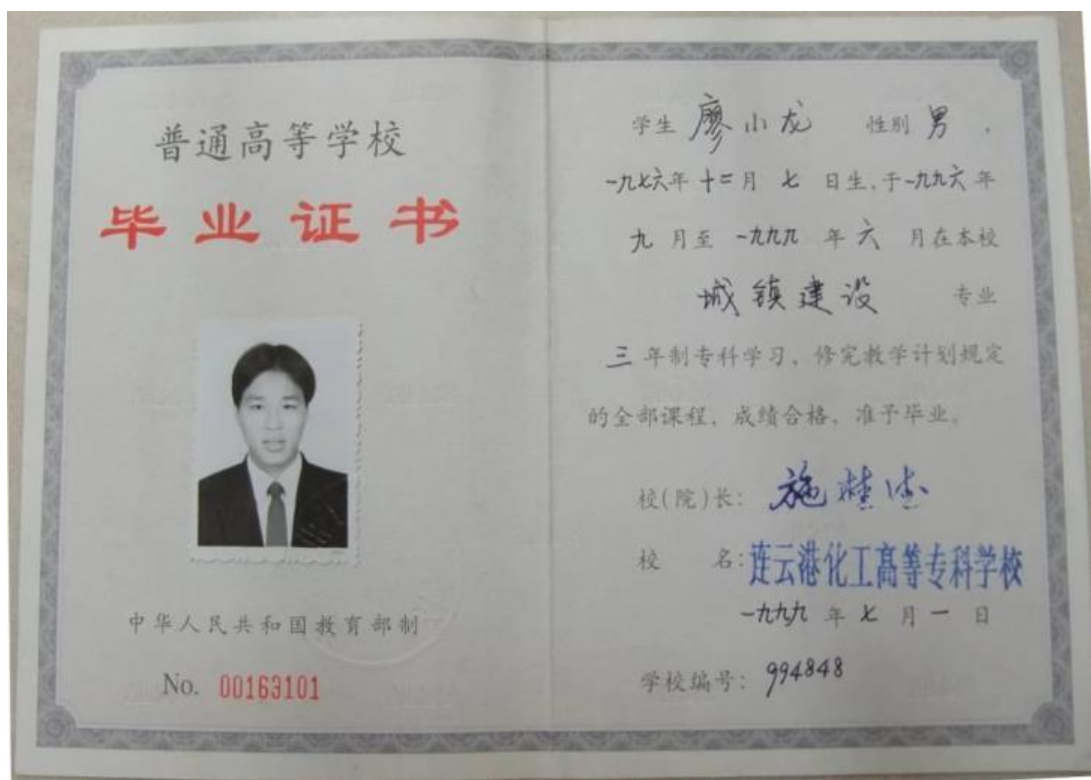 普通高等学校
毕业证书
中华人民共和国教育部制
No. 00163101
学生 廖小龙 性别 男 .
一九七六年 十二月 七 日生,于一九九六 年
九 月至 一九九九 年 六 月在本校
城镇建设 专业
三 年制专科学习、修完教学计划规定
的全部课程、成绩合格、准予毕业。
校(院)长: 施
校 名: 连云港化工高等专科学校
一九九九 年 七 月 一 日
学校编号: 994848